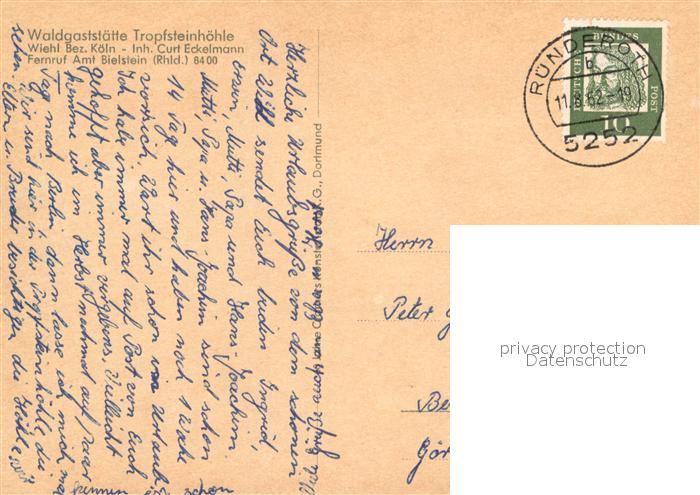 Waldgaststätte Tropfsteinhöhle
Wiehl Bez. Köln - Inh. Curt Eckelmann
Fernruf Amt Bielstein (Rhld.) 8400
Herzliche Urlaubsgrüße von dem schönen
Ort Wiehl sendet Euch beiden Ingrid,
Erwin, Mutti, Papa und Hans-Joachim.
Mutti, Papa u. Hans-Joachim sind schon
14 Tag hier und haben noch 1 Woche
Wart ihr schon im Urlaub
Ich habe immer mal auf Post von Euch
gehofft aber immer vergebens. Vielleicht
komme ich im Herbst nochmal auf paar
Tag nach Berlin dann lasse ich mich mal
sehen. Wir sind hier in der Tropfsteinhöhle, die
Eltern u. Bruder besichtigen die Höhle
G., Dortmund
DEUTSCHE BUNDESPOST
10
RÜNDEROTH
b
11.8.62-19
5252
Herrn
Peter G
Be
Gör
privacy protection
Datenschutz